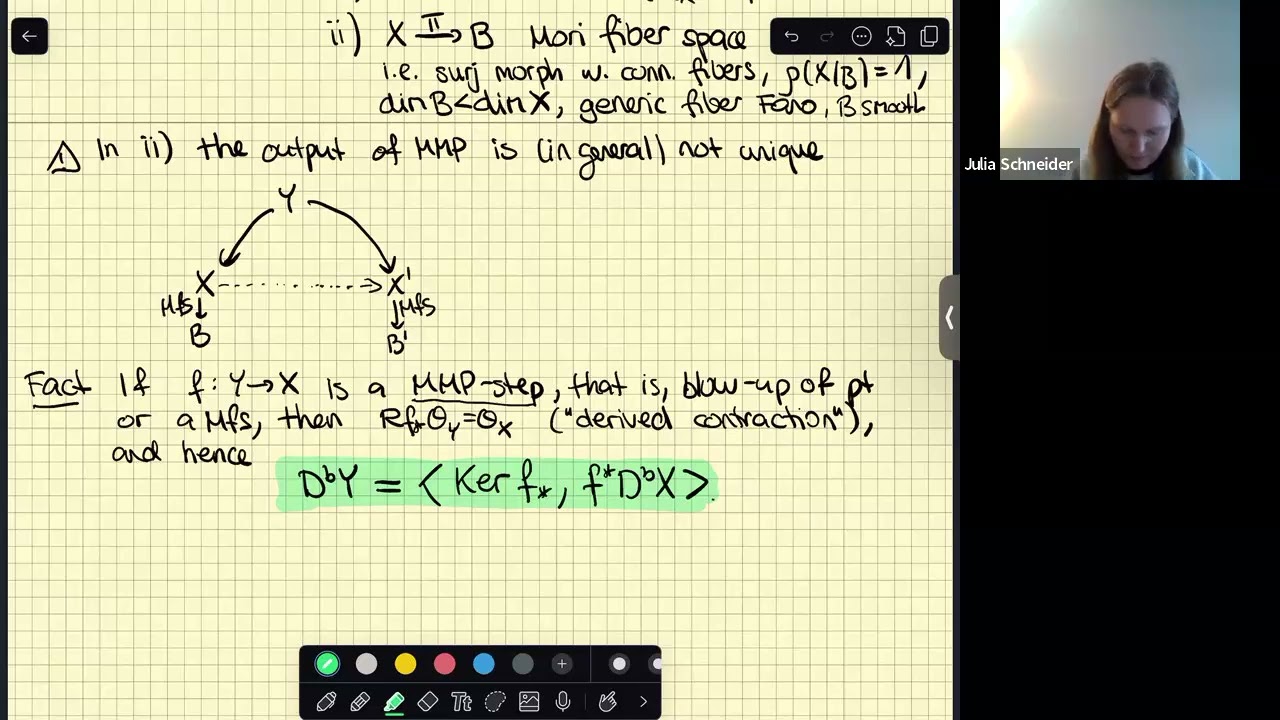 ii) X →π B Mori fiber space
i.e. surj morph w. conn. fibers, ρ(X/B)=1,
dim B < dim X, generic fiber Fano, B smooth
⚠ In ii) the output of MMP is (in general) not unique
Y
X ⇢ X'
Mfs ↓ ↓ Mfs
B B'
Fact If f: Y→X is a MMP-step, that is, blow-up of pt
or a Mfs, then Rf_*O_Y=O_X ("derived contraction"),
and hence
D^bY = < Ker f_*, f^*D^bX >.
Julia Schneider
Tt